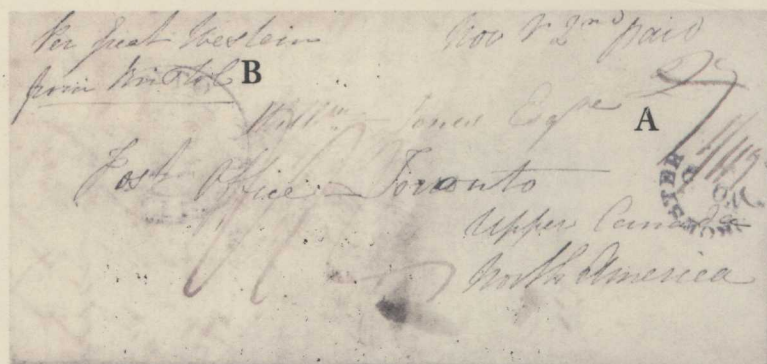 Per Great Western
from Bristol
B
Novr 2nd paid
A
Willm Jones Esqre
Post Office Toronto
Upper Canada
North America